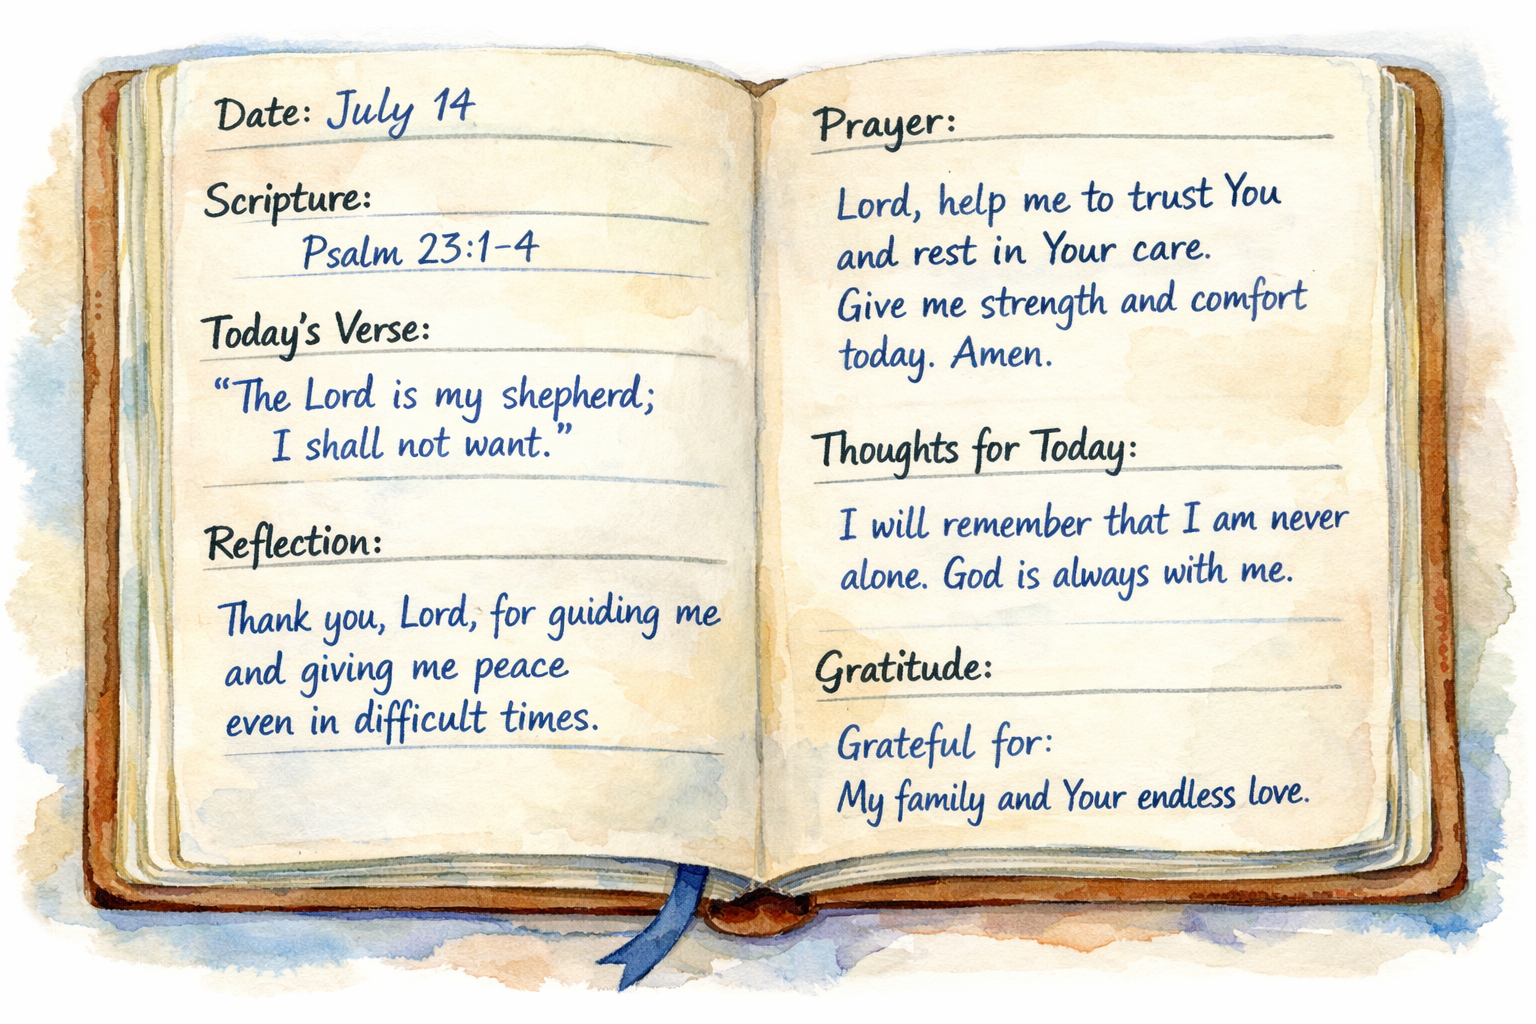 Date: July 14
Scripture:
Psalm 23:1-4
Today's Verse:
“The Lord is my shepherd;
I shall not want.”
Reflection:
Thank you, Lord, for guiding me
and giving me peace
even in difficult times.
Prayer:
Lord, help me to trust You
and rest in Your care.
Give me strength and comfort
today. Amen.
Thoughts for Today:
I will remember that I am never
alone. God is always with me.
Gratitude:
Grateful for:
My family and Your endless love.